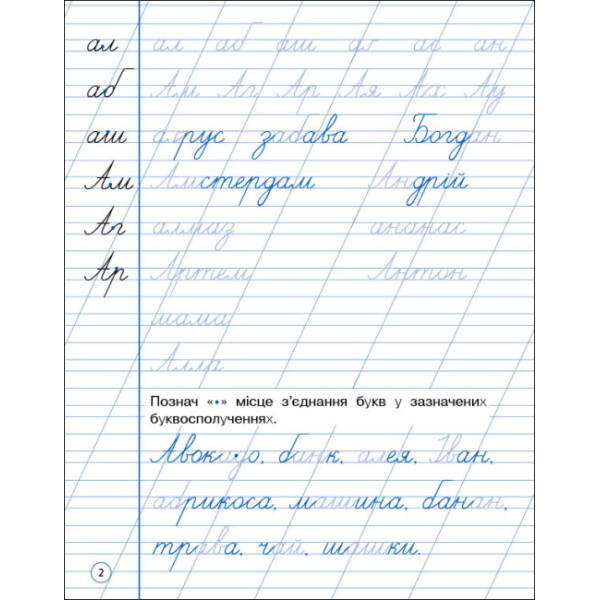 ал ал аб аш ас ан
аб Ам Аг Ар Ая Ах Ау
аш забава Богдан
Ам Амстердам Андрій
Аг алмаз ананас
Ар Артем Антон
Алла
Познач «•» місце з’єднання букв у зазначених
буквосполученнях.
Авокадо, банк, алея, Іван,
абрикоса, машина, банан,
трава, чай, шашки.
2